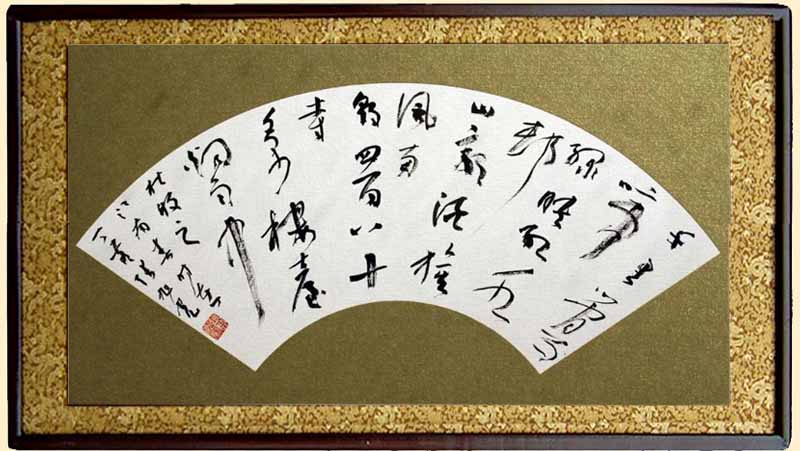 千里鶯啼
綠映紅水
村
山郭酒旗
風南
朝四百八十
寺
多少樓臺
烟雨中
杜牧之
江南春